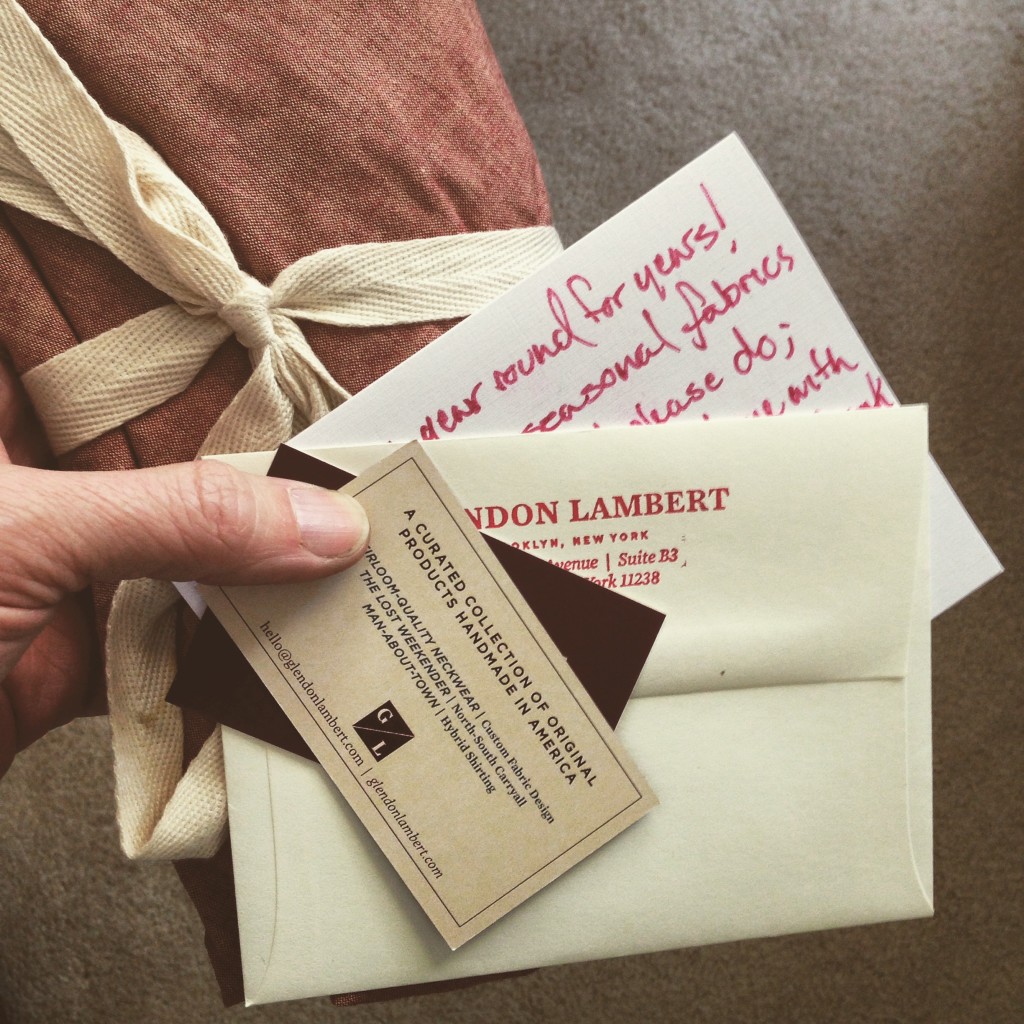 year round for years!
seasonal fabrics
please do;
with
NDON LAMBERT
OKLYN, NEW YORK
venue | Suite B3
York 11238
A CURATED COLLECTION OF ORIGINAL
PRODUCTS HANDMADE IN AMERICA
IRLOOM-QUALITY NECKWEAR | Custom Fabric Design
THE LOST WEEKENDER | North-South Carryall
MAN-ABOUT-TOWN | Hybrid Shirting
G
L
hello@glendonlambert.com | glendonlambert.com